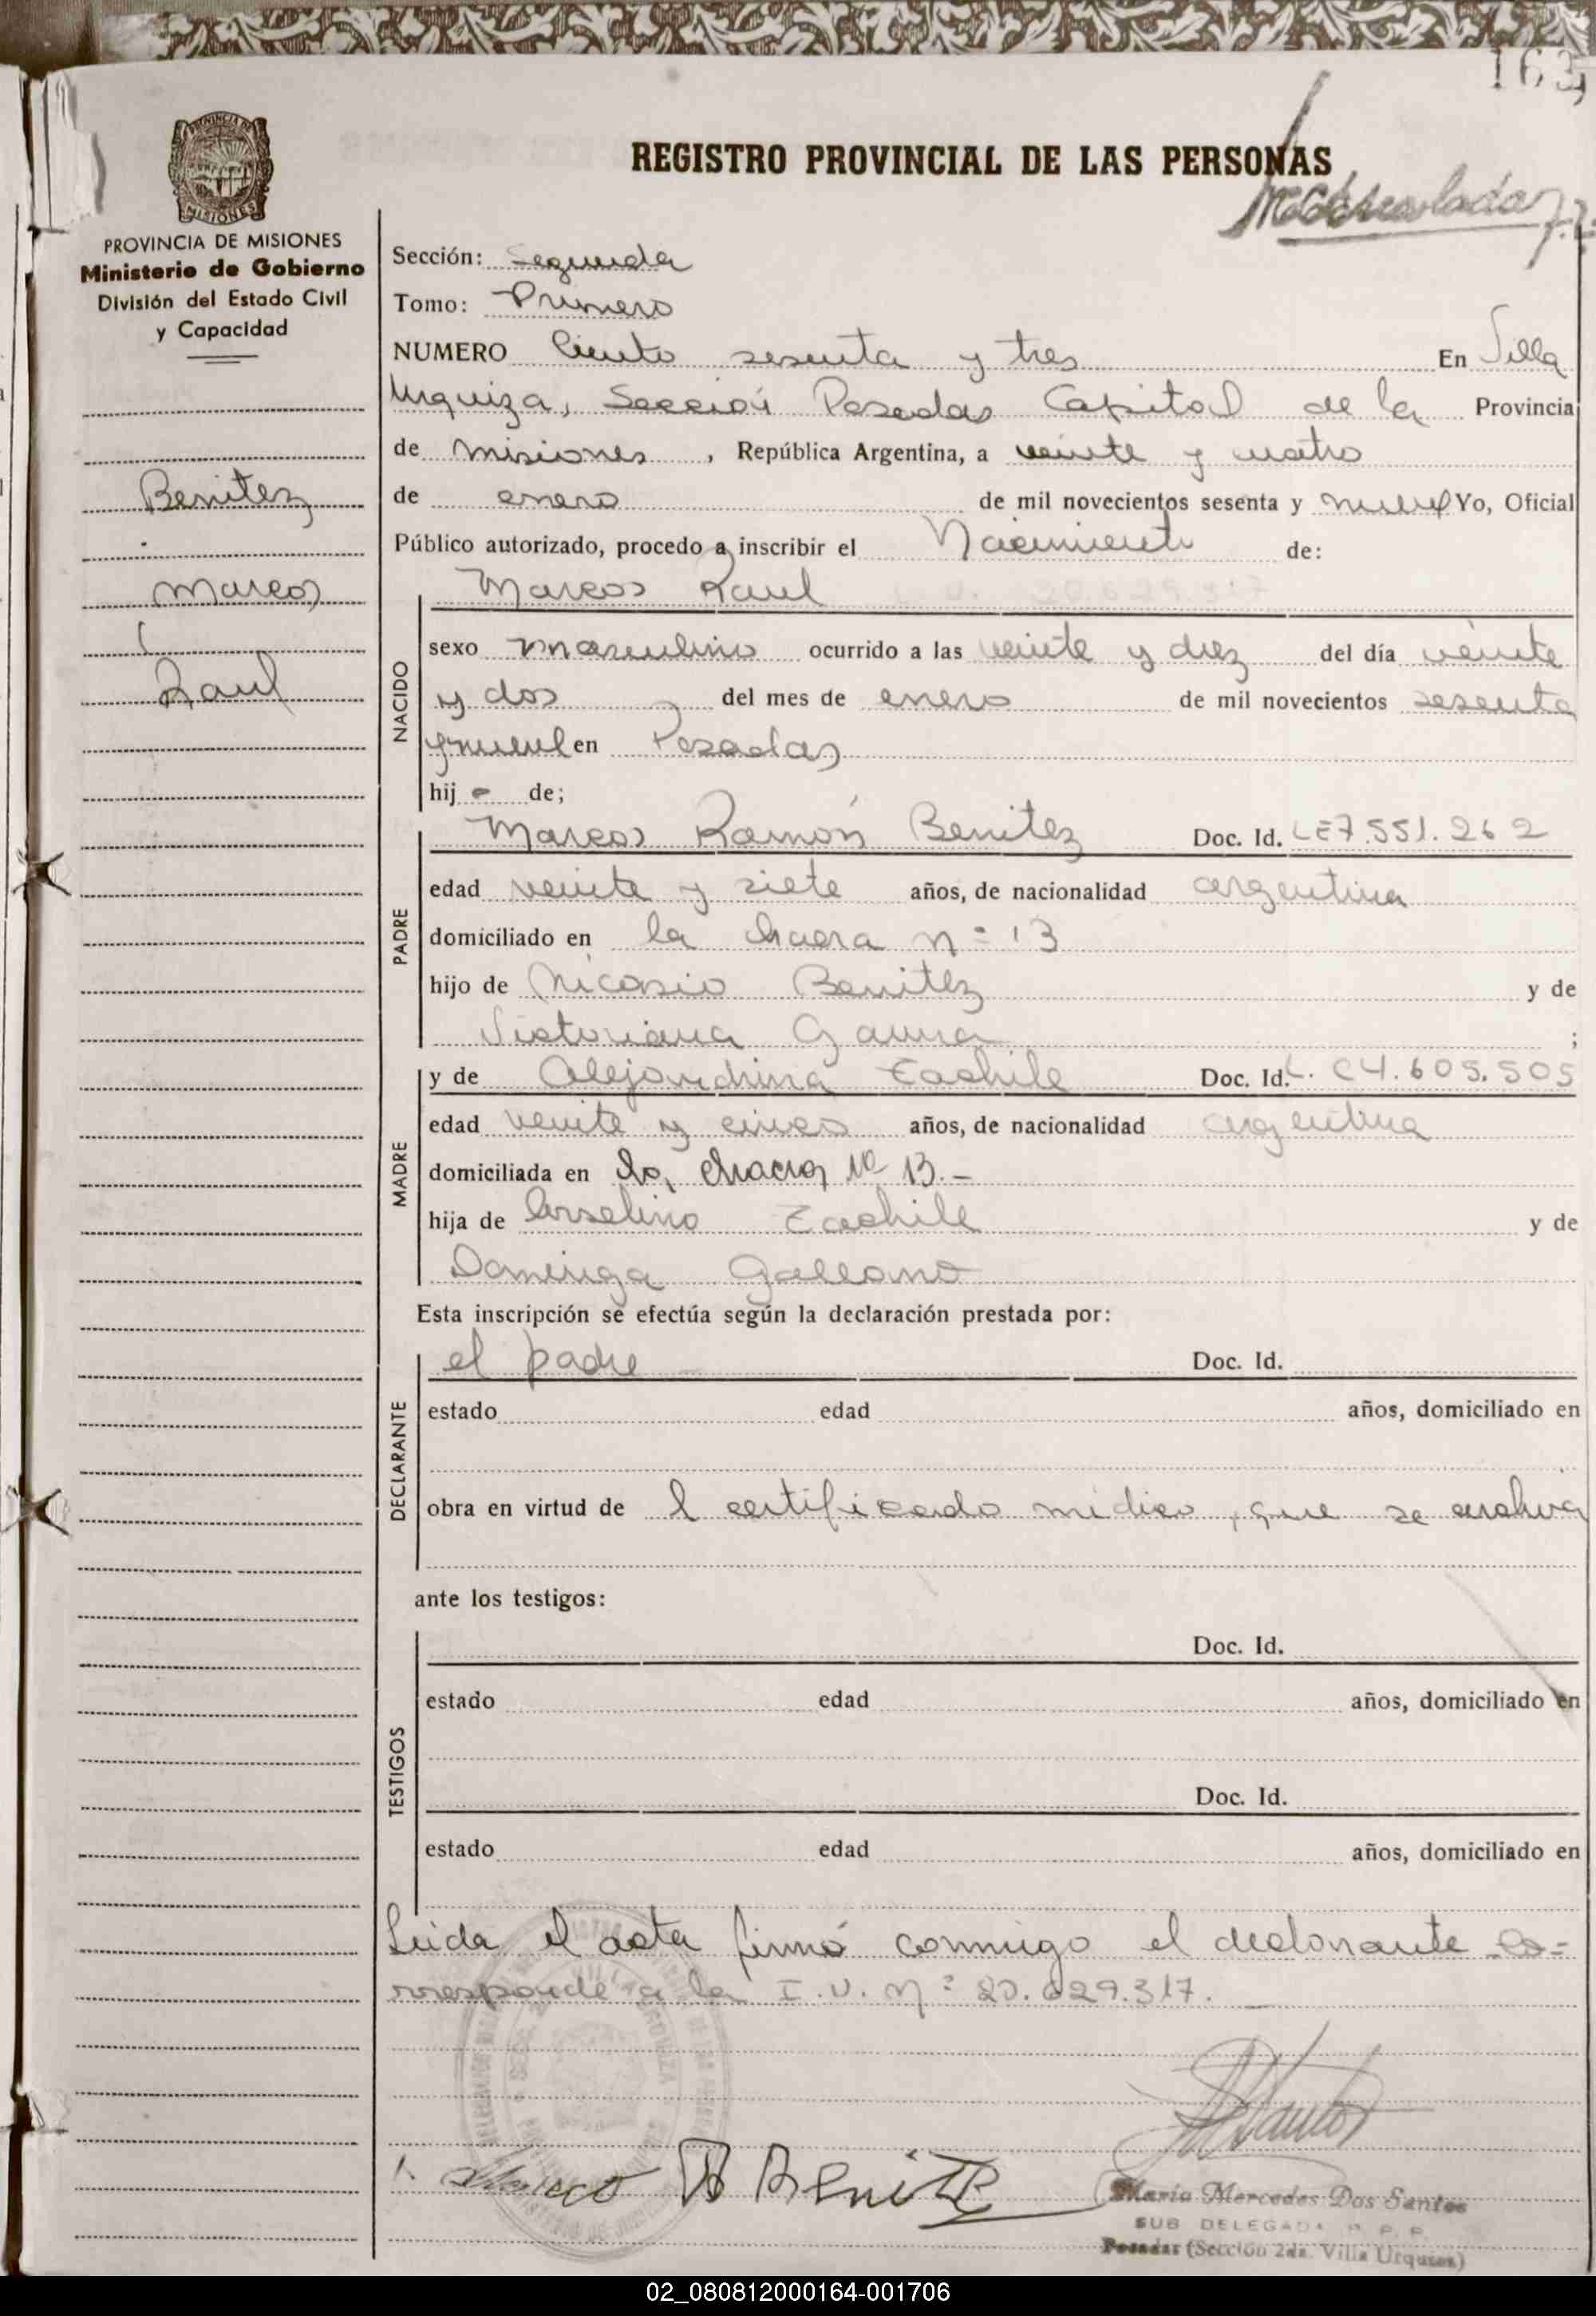 163
REGISTRO PROVINCIAL DE LAS PERSONAS
PROVINCIA DE MISIONES
Ministerio de Gobierno
División del Estado Civil
y Capacidad
Benitez
Marcos
Raul
Sección: Segunda
Tomo: Primero
NUMERO Ciento sesenta y tres En Villa
Urquiza, Sección Posadas Capital de la Provincia
de misiones, República Argentina, a veinte y cuatro
de enero de mil novecientos sesenta y nueve Yo, Oficial
Público autorizado, procedo a inscribir el Nacimiento de:
Marcos Raul
NACIDO
sexo masculino ocurrido a las veinte y diez del día veinte
y dos del mes de enero de mil novecientos sesenta
y nueve en Posadas
hij o de;
PADRE
Marcos Ramón Benitez Doc. Id. LE 7.551.262
edad veinte y siete años, de nacionalidad argentina
domiciliado en la chacra nº 13
hijo de Nicasio Benitez y de
Victoriana Gauna ;
MADRE
y de Alejandrina Doc. Id. L. C 4.605.505
edad veinte y cinco años, de nacionalidad argentina
domiciliada en la chacra Nº 13.-
hija de y de
Dominga
Esta inscripción se efectúa según la declaración prestada por:
DECLARANTE
el padre Doc. Id.
estado edad años, domiciliado en
obra en virtud de l certificado médico, que se archiva
ante los testigos:
TESTIGOS
Doc. Id.
estado edad años, domiciliado en
Doc. Id.
estado edad años, domiciliado en
Leida el acta firmó conmigo el declarante co=
rresponde a la I.U. Nº 20.629.317.
Benitez
María Mercedes Dos Santos
SUB DELEGADA R. P. P.
Posadas (Sección 2da. Villa Urquiza)
02_080812000164-001706